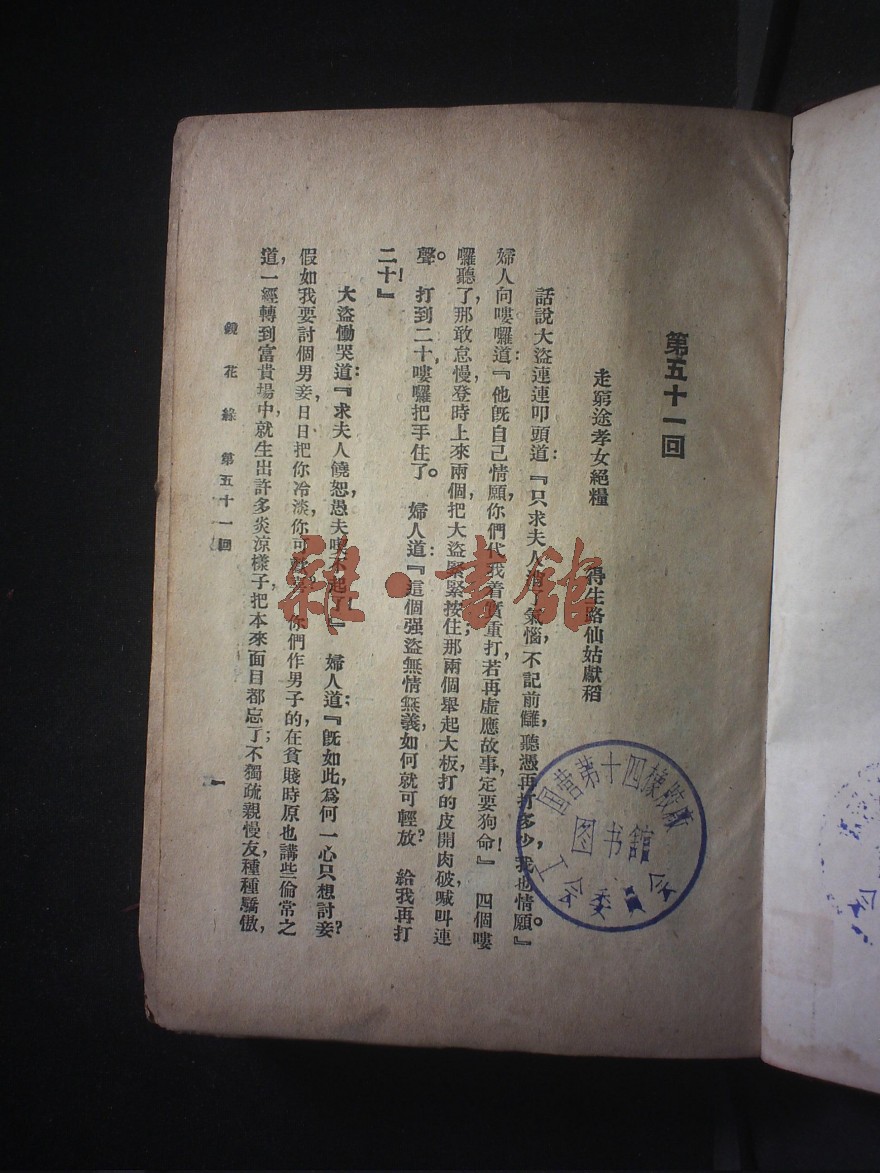 第五十一回
走窮途孝女絕糧　得生路仙姑獻稻
話說大盜連連叩頭道：『只求夫人消了氣惱，不記前讎，聽憑再打多少，我也情願。』
婦人向嘍囉道：『他旣自己情願，你們代我着實重打，若再虛應故事，定要狗命！』　四個嘍
囉聽了，那敢怠慢，登時上來兩個，把大盜緊緊按住；那兩個舉起大板，打的皮開肉破，喊叫連
聲。　打到二十，嘍囉把手住了。　婦人道：『這個强盜無情無義，如何就可輕放？　給我再打
二十！』
大盜慟哭道：『求夫人饒恕，愚夫吃不起了！』　婦人道：『旣如此，爲何一心只想討妾？
假如我要討個男妾，日日把你冷淡，你可歡喜？　你們作男子的，在貧賤時原也講些倫常之
道，一經轉到富貴場中，就生出許多炎涼樣子，把本來面目都忘了；不獨疏親慢友，種種驕傲，
鏡花緣　第五十一回
一
雜·書館
國營第十四橡膠廠
图书舘
工会委員会
会